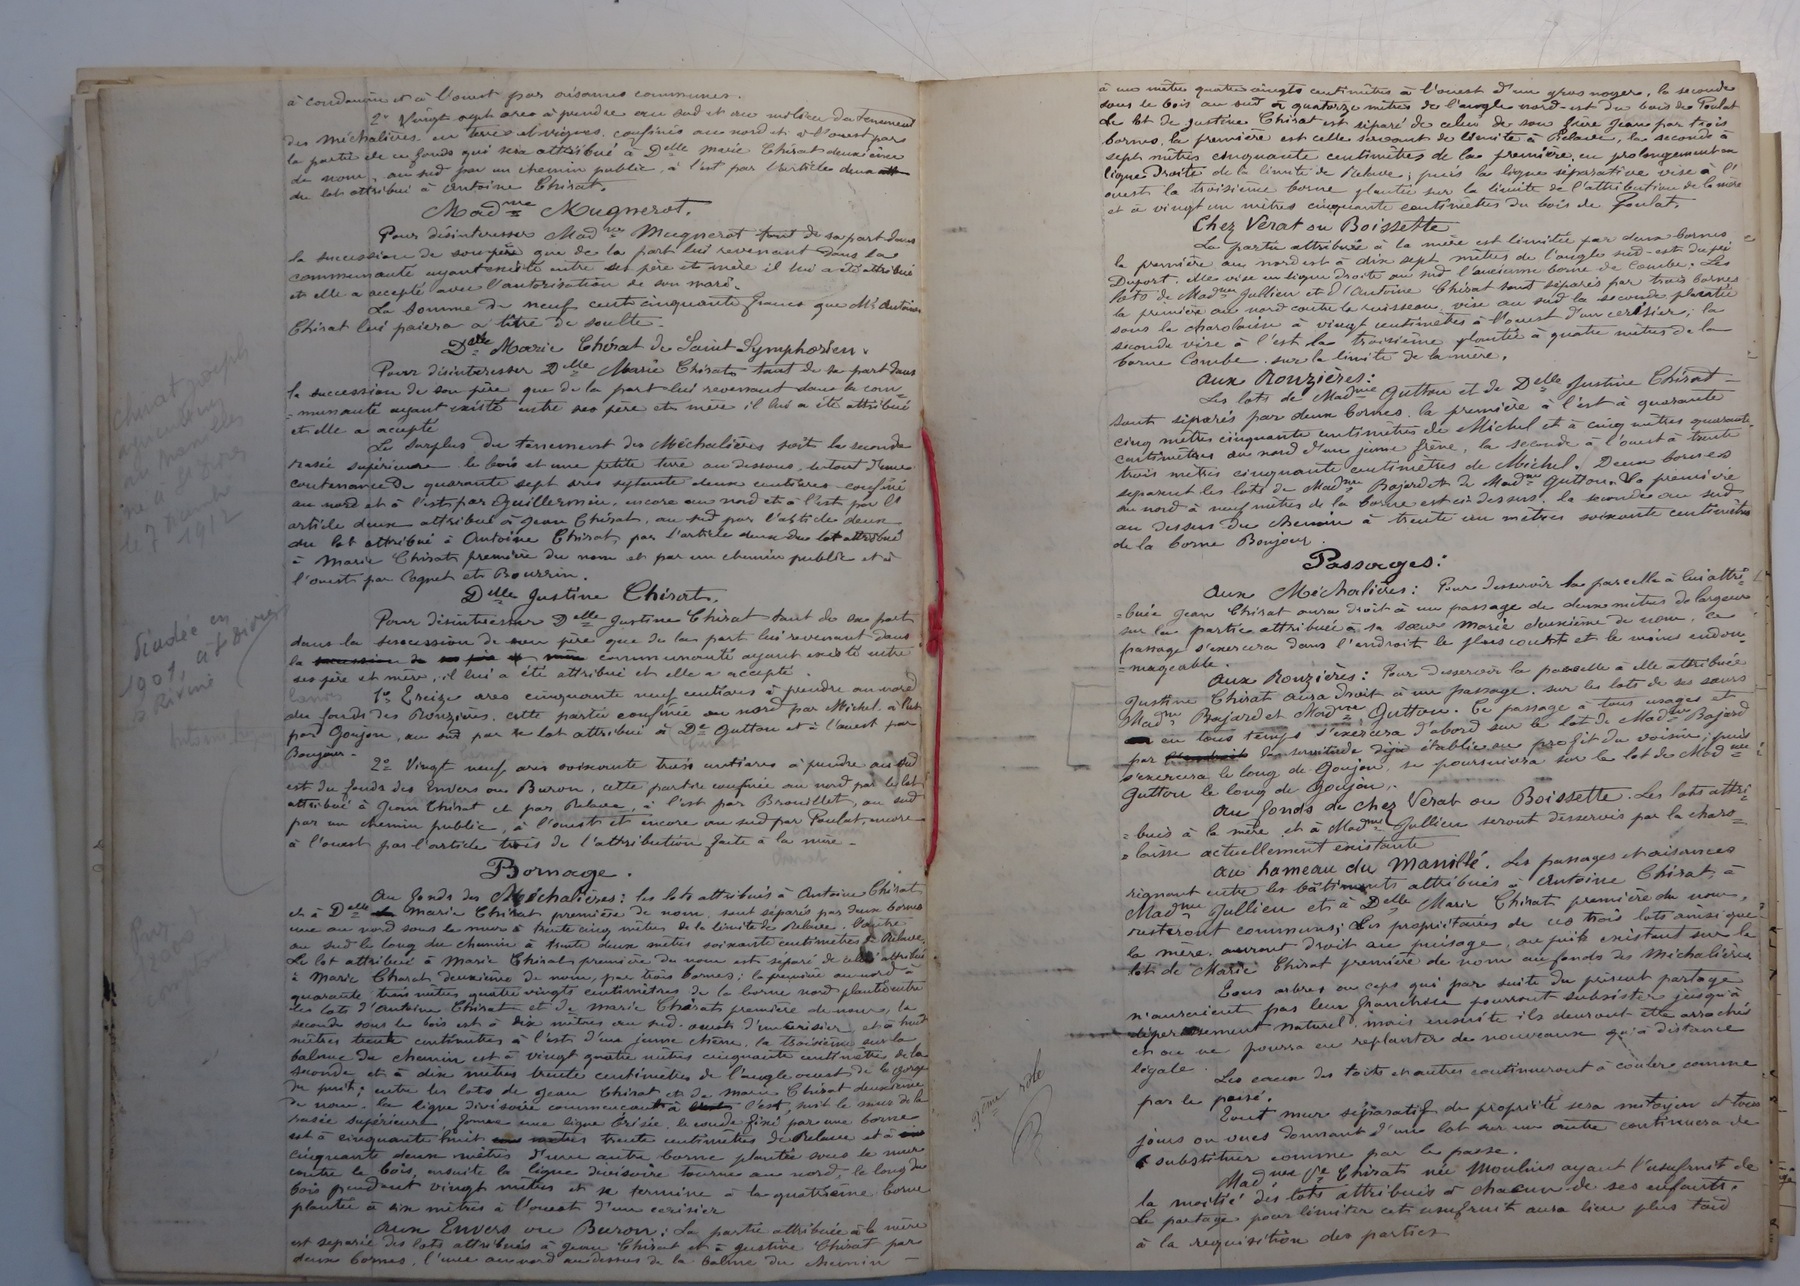 à l'ouest par aisances communes.
2º Vingt sept ares à prendre au sud et au milieu du tenement
des Méchalières, en terre et vignes, confinés au nord et à l'ouest par
la partie de ce fonds qui sera attribué à Delle Marie Chirat deuxième
de nom, au sud par un chemin public, à l'est par l'article deux
du lot attribué à Antoine Chirat.
Madme Mugnerot.
Pour désintéresser Madme Mugnerot tant de sa part dans
la succession de son père que de la part lui revenant dans la
communauté ayant existé entre ses père et mère il lui a été attribué
et elle a accepté avec l'autorisation de son mari.
La somme de neuf cent cinquante francs que Mr Antoine
Chirat lui paiera à titre de soulte.
Delle Marie Chirat de Saint Symphorien.
Pour désintéresser Delle Marie Chirat tant de sa part dans
la succession de son père que de la part lui revenant dans la com-
=munauté ayant existé entre ses père et mère il lui a été attribué
et elle a accepté
Le surplus du tenement des Méchalières soit la seconde
rasée supérieure le bois et une petite terre au dessous, le tout d'une
contenance de quarante sept ares septante deux centiares confiné
au nord et à l'est par Guillermin, encore au nord et à l'est par l'
article deux attribué à Jean Chirat, au sud par l'article deux
du lot attribué à Antoine Chirat, par l'article deux du lot attribué
à Marie Chirat première du nom et par un chemin public et à
l'ouest par Cognet et Bourrin.
Delle Justine Chirat.
Pour désintéresser Delle Justine Chirat tant de sa part
dans la succession de son père que de la part lui revenant dans
la communauté ayant existé entre
ses père et mère, il lui a été attribué et elle a accepté.
1º Treize ares cinquante neuf centiares à prendre au nord
du fonds des Rouzières, cette partie confinée au nord par Michel, à l'est
par Goujon, au sud par le lot attribué à De Gutton et à l'ouest par
Bonjour.
2º Vingt neuf ares soixante trois centiares à prendre au sud
est du fonds des Envers ou Buron, cette partie confinée au nord par le lot
attribué à Jean Chirat et par Relave, à l'est par Brouillet, au sud
par un chemin public, à l'ouest et encore au sud par Poulat, encore
à l'ouest par l'article trois de l'attribution faite à la mère.
Bornage.
Au fonds des Méchalières: les lots attribués à Antoine Chirat
et à Delle Marie Chirat première de nom, sont séparés par deux bornes
une au nord sous le mur à trente cinq mètres de la limite de Relave, l'autre
au sud le long du chemin à trente deux mètres soixante centimètres de Relave.
Le lot attribué à Marie Chirat première du nom est séparé de celui attribué
à Marie Chirat deuxième de nom, par trois bornes; la première au nord à
quarante trois mètres quatre vingts centimètres de la borne nord plantée entre
les lots d'Antoine Chirat et de Marie Chirat première de nom, la
seconde sous le bois est à dix mètres au sud-ouest d'un cerisier et à huit
mètres trente centimètres à l'est d'un jeune chêne, la troisième sur la
balme du chemin est à vingt quatre mètres cinquante centimètre de la
seconde et à dix mètres trente centimètres de l'angle ouest de la gorge
du puits; entre les lots de Jean Chirat et de Marie Chirat deuxième
de nom, la ligne divisoire commençant à l'est, suit le mur de la
rasée supérieure, forme une ligne brisée, le coude fixé par une borne
est à cinquante huit mètres trente centimètres de Relave et à
cinquante deux mètres d'une autre borne plantée sous le mur
contre le bois, ensuite la ligne divisoire tourne au nord, le long du
bois pendant vingt mètres et se termine à la quatrième borne
plantée à six mètres à l'ouest d'un cerisier
Aux Envers ou Buron: La partie attribuée à la mère
est séparée des lots attribués à Jean Chirat et à Justine Chirat par
deux bornes, l'une au nord au dessus de la balme du chemin
Chirat Joseph
agriculteur
au Manillés
7
1912
décédée en
1909, à St
à un mètre quatre vingts centimètres à l'ouest d'un gros noyer, la seconde
sous le bois au sud à quatorze mètres de l'angle nord-est du bois de Poulat
Le lot de Justine Chirat est séparé de celui de son frère Jean par trois
bornes, la première est celle servant de limite à Relave, la seconde à
sept mètres cinquante centimètres de la première en prolongement en
ligne droite de la limite de Relave; puis la ligne séparative vise à l'
ouest la troisième borne plantée sur la limite de l'attribution de la mère
et à vingt un mètres cinquante centimètres du bois de Poulat.
Chez Verat ou Boissette
La partie attribuée à la mère est limitée par deux bornes
la première au nord est à dix sept mètres de l'angle sud-est du pré
Duport, elle vise en ligne droite au sud l'ancienne borne de Combe. Les
lots de Madme Jullien et d'Antoine Chirat sont séparés par trois bornes
la première au nord contre le ruisseau, vise au sud la seconde plantée
sous la charolaise à vingt centimètres à l'ouest d'un cerisier; la
seconde vise à l'est la troisième plantée à quatre mètres de la
borne Combe sur la limite de la mère.
Aux Rouzières:
Les lots de Madme Gutton et de Delle Justine Chirat
sont séparés par deux bornes, la première à l'est à quarante
cinq mètres cinquante centimètres de Michel et à cinq mètres quarante
centimètres au nord d'un jeune frêne, la seconde à l'ouest à trente
trois mètres cinquante centimètres de Michel. Deux bornes
séparent les lots de Madme Bajard et de Madme Gutton. La première
au nord à neuf mètres de la borne est ci dessus, la seconde au sud
au dessus du chemin à trente un mètres soixante centimètres
de la borne Bonjour.
Passages:
Aux Méchalières: Pour desservir la parcelle à lui attri-
=buée Jean Chirat aura droit à un passage de deux mètres de largeur
sur la partie attribuée à sa sœur Marie deuxième de nom, ce
passage s'exercera dans l'endroit le plus court et le moins endom-
=mageable.
Aux Rouzières: Pour desservir la parcelle à elle attribuée
Justine Chirat aura droit à un passage sur les lots de ses sœurs
Madme Bajard et Madme Gutton. Ce passage à tous usages et
en tous temps s'exercera d'abord sur le lot de Madme Bajard
par la servitude déjà établie au profit du voisin; puis
s'exercera le long de Goujon, se poursuivra sur le lot de Madme
Gutton le long de Goujon.
Au fonds de chez Verat ou Boissette. Les lots attri-
=bués à la mère et à Madme Jullien seront desservis par la charo-
=laise actuellement existante
Au hameau du Manillé. Les passages et aisances
régnant entre les bâtiments attribués à Antoine Chirat, à
Madme Jullien et à Delle Marie Chirat première du nom,
resteront communs; Les propriétaires de ces trois lots ainsi que
la mère, auront droit au puisage, au puits existant sur le
lot de Marie Chirat première de nom au fonds des Méchalières
Tous arbres ou ceps qui par suite du présent partage
n'auraient pas leur franchise pourront subsister jusqu'à
dépérissement naturel, mais ensuite ils devront être arrachés
et on ne pourra en replanter de nouveaux qu'à distance
légale.
Les eaux des toits et autres continueront à couler comme
par le passé.
Tout mur séparatif de propriété sera mitoyen et tous
jours ou vues donnant d'un lot sur un autre continuera de
substituer comme par le passé.
Madme Ve Chirat née Moulins ayant l'usufruit de
la moitié des lots attribués à chacun de ses enfants.
Le partage pour limiter cet usufruit aura lieu plus tard
à la réquisition des parties
9ème rôle